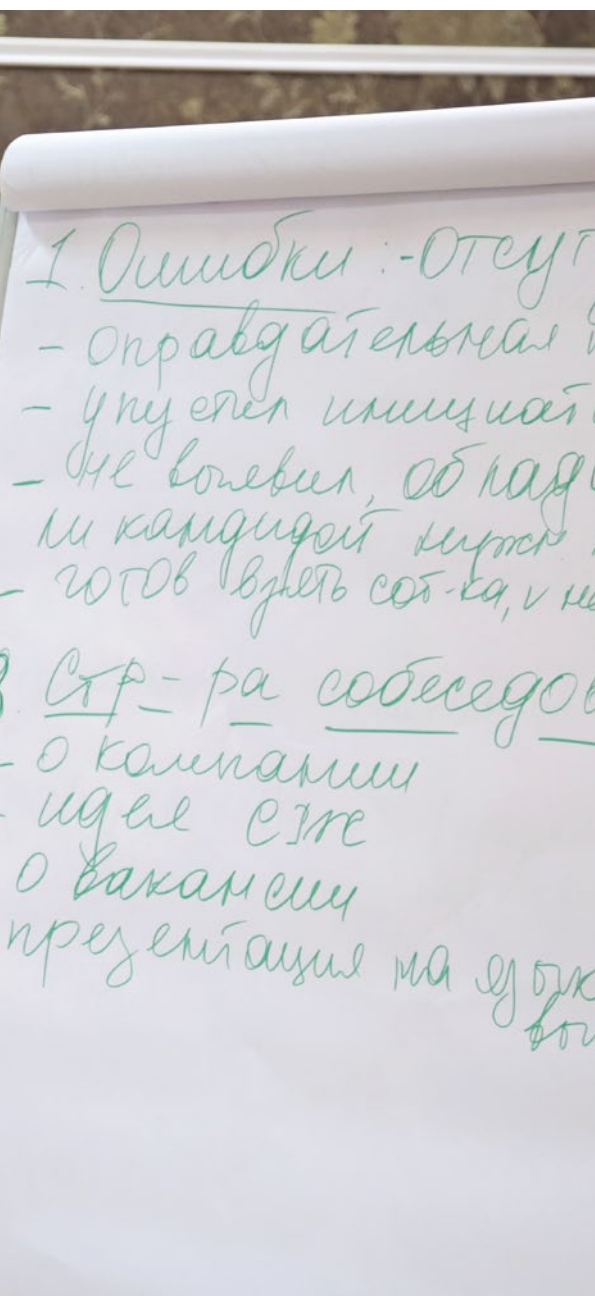 1. Ошибки: - Отсут
- оправдательная
- упустил инициат
- Не выявил, облад
ли кандидат нужн
- готов взять сот-ка, v не
Стр-ра собеседов
- о компании
- идея
о вакансии
презентация на язык
выг